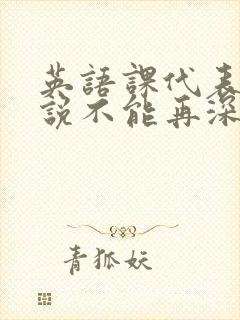 英語課代表
說不能再深
青狐妖